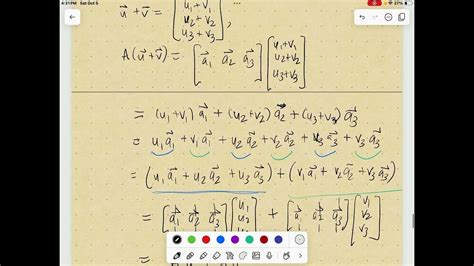 4:21 PM Sat Oct 5
27%
u⃗ + v⃗ = [u₁+v₁ u₂+v₂ u₃+v₃],
A(u⃗+v⃗) = [a⃗₁ a⃗₂ a⃗₃] [u₁+v₁ u₂+v₂ u₃+v₃]
= (u₁+v₁) a⃗₁ + (u₂+v₂) a⃗₂ + (u₃+v₃) a⃗₃
= u₁a⃗₁ + v₁a⃗₁ + u₂a⃗₂ + v₂a⃗₂ + u₃a⃗₃ + v₃a⃗₃
= (u₁a⃗₁ + u₂a⃗₂ + u₃a⃗₃) + (v₁a⃗₁ + v₂a⃗₂ + v₃a⃗₃)
= [a⃗₁ a⃗₂ a⃗₃] [u₁ u₂ u₃] + [a⃗₁ a⃗₂ a⃗₃] [v₁ v₂ v₃]
=